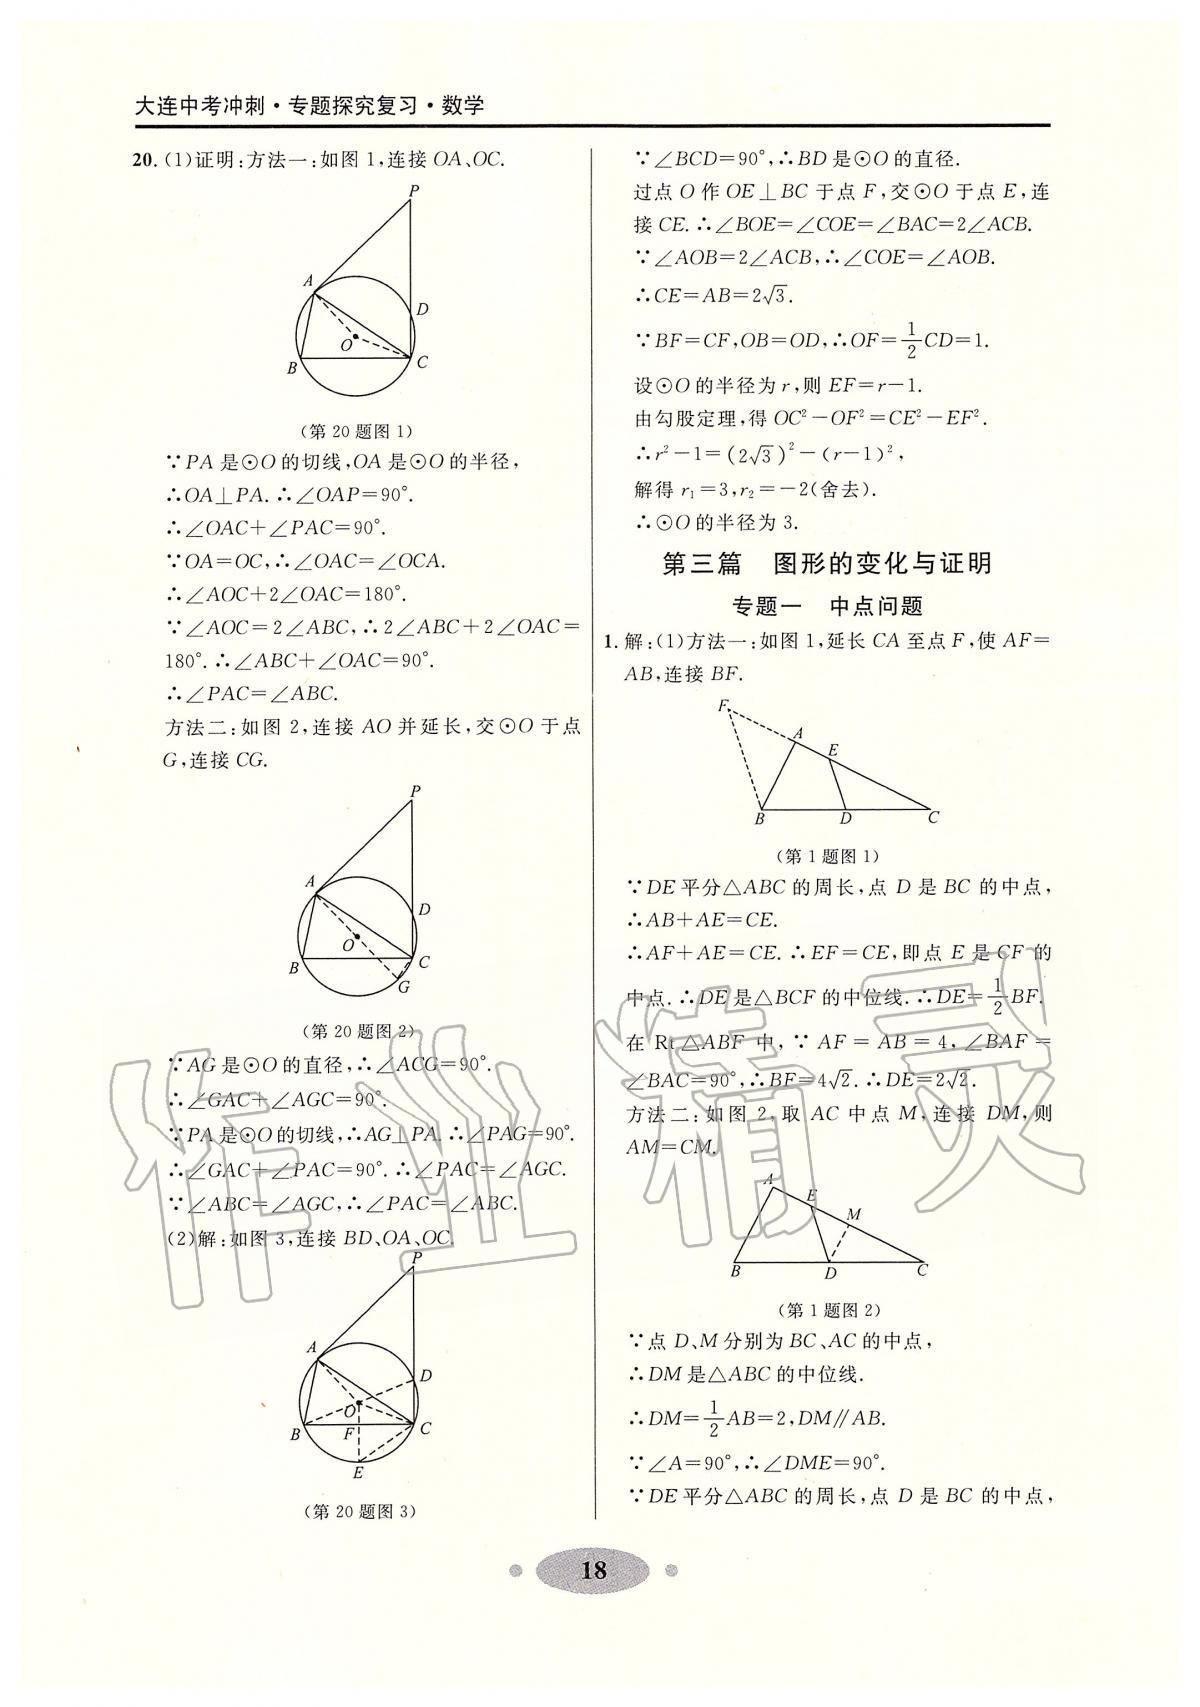 大连中考冲刺·专题探究复习·数学
20. (1)证明:方法一:如图 1,连接 OA、OC.
P
A
D
O
B
C
(第 20 题图 1)
∵PA 是⊙O 的切线,OA 是⊙O 的半径,
∴OA⊥PA. ∴∠OAP=90°.
∴∠OAC+∠PAC=90°.
∵OA=OC,∴∠OAC=∠OCA.
∴∠AOC+2∠OAC=180°.
∵∠AOC=2∠ABC,∴2∠ABC+2∠OAC=
180°. ∴∠ABC+∠OAC=90°.
∴∠PAC=∠ABC.
方法二:如图 2,连接 AO 并延长,交⊙O 于点
G,连接 CG.
P
A
D
O
B
C
G
(第 20 题图 2)
∵AG 是⊙O 的直径,∴∠ACG=90°.
∴∠GAC+∠AGC=90°.
∵PA 是⊙O 的切线,∴AG⊥PA. ∴∠PAG=90°.
∴∠GAC+∠PAC=90°. ∴∠PAC=∠AGC.
∵∠ABC=∠AGC,∴∠PAC=∠ABC.
(2)解:如图 3,连接 BD、OA、OC.
P
A
D
O
B
F
C
E
(第 20 题图 3)
∵∠BCD=90°,∴BD 是⊙O 的直径.
过点 O 作 OE⊥BC 于点 F,交⊙O 于点 E,连
接 CE. ∴∠BOE=∠COE=∠BAC=2∠ACB.
∵∠AOB=2∠ACB,∴∠COE=∠AOB.
∴CE=AB=2√3.
∵BF=CF,OB=OD,∴OF=1/2CD=1.
设⊙O 的半径为 r,则 EF=r−1.
由勾股定理,得 OC²−OF²=CE²−EF².
∴r²−1=(2√3)²−(r−1)²,
解得 r₁=3,r₂=−2(舍去).
∴⊙O 的半径为 3.
第三篇 图形的变化与证明
专题一 中点问题
1. 解:(1)方法一:如图 1,延长 CA 至点 F,使 AF=
AB,连接 BF.
F
A
E
B
D
C
(第 1 题图 1)
∵DE 平分△ABC 的周长,点 D 是 BC 的中点,
∴AB+AE=CE.
∴AF+AE=CE. ∴EF=CE,即点 E 是 CF 的
中点. ∴DE 是△BCF 的中位线. ∴DE=1/2BF.
在 Rt△ABF 中,∵AF=AB=4,∠BAF=
∠BAC=90°,∴BF=4√2. ∴DE=2√2.
方法二:如图 2,取 AC 中点 M,连接 DM,则
AM=CM.
A
E
M
B
D
C
(第 1 题图 2)
∵点 D、M 分别为 BC、AC 的中点,
∴DM 是△ABC 的中位线.
∴DM=1/2AB=2,DM∥AB.
∵∠A=90°,∴∠DME=90°.
∵DE 平分△ABC 的周长,点 D 是 BC 的中点,
18
作业精灵